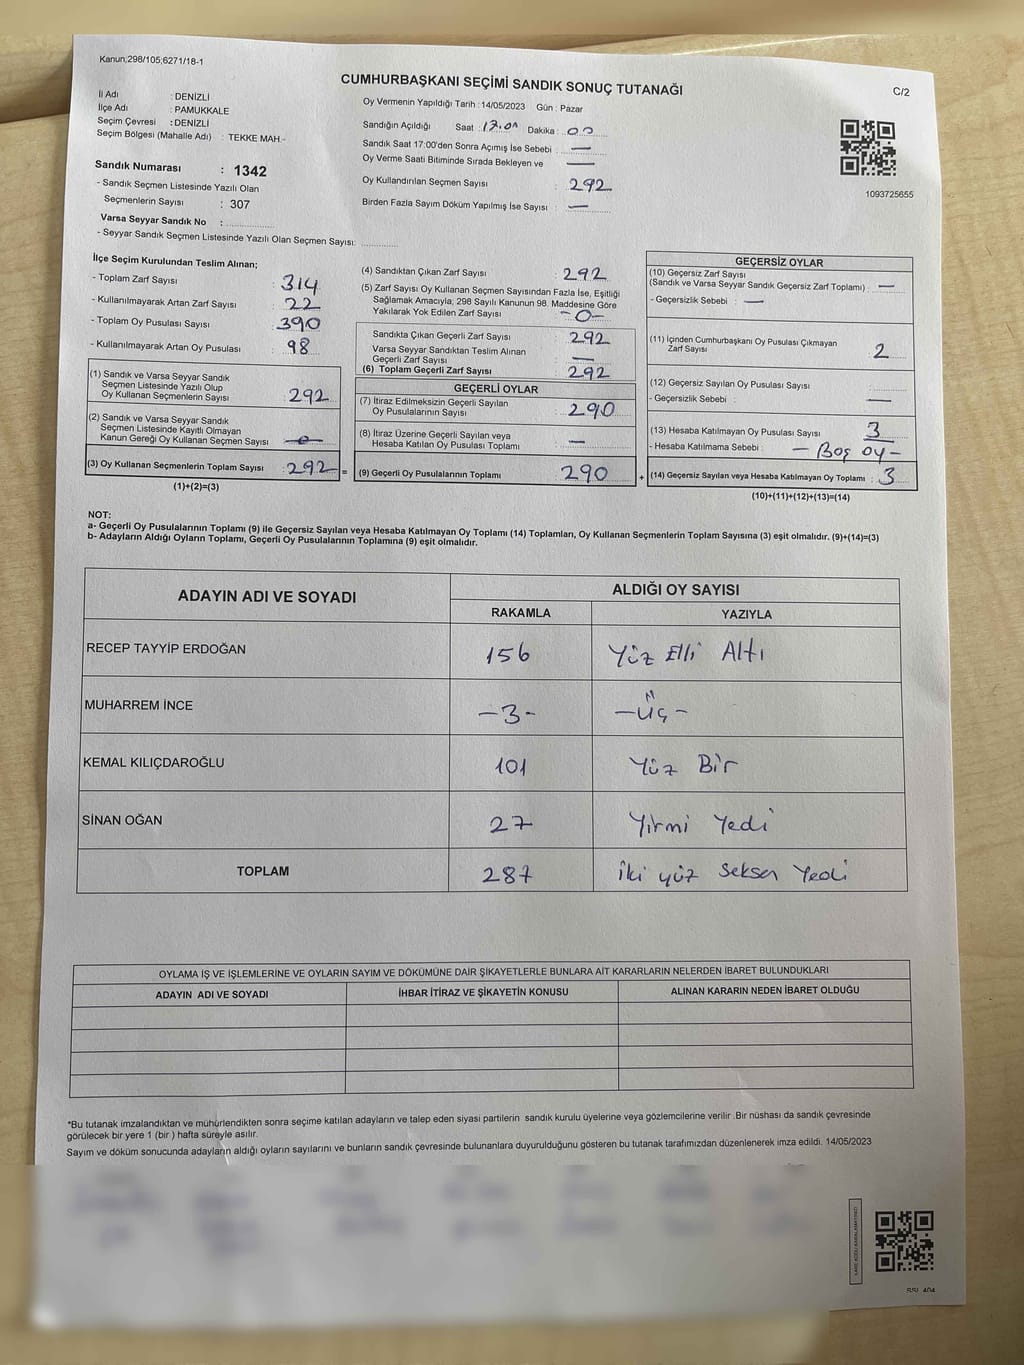 Kanun;298/105;6271/18-1
CUMHURBAŞKANI SEÇİMİ SANDIK SONUÇ TUTANAĞI
C/2
İl Adı : DENİZLİ
İlçe Adı : PAMUKKALE
Seçim Çevresi : DENİZLİ
Seçim Bölgesi (Mahalle Adı) : TEKKE MAH.-
Sandık Numarası : 1342
- Sandık Seçmen Listesinde Yazılı Olan
Seçmenlerin Sayısı : 307
Varsa Seyyar Sandık No :
- Seyyar Sandık Seçmen Listesinde Yazılı Olan Seçmen Sayısı:
Oy Vermenin Yapıldığı Tarih : 14/05/2023 Gün : Pazar
Sandığın Açıldığı Saat : 17.00 Dakika : 00
Sandık Saat 17:00'den Sonra Açımış İse Sebebi : —
Oy Verme Saati Bitiminde Sırada Bekleyen ve —
Oy Kullandırılan Seçmen Sayısı : 292
Birden Fazla Sayım Döküm Yapılmış İse Sayısı : —
1093725655
İlçe Seçim Kurulundan Teslim Alınan;
- Toplam Zarf Sayısı : 314
- Kullanılmayarak Artan Zarf Sayısı : 22
- Toplam Oy Pusulası Sayısı : 390
- Kullanılmayarak Artan Oy Pusulası : 98
(1) Sandık ve Varsa Seyyar Sandık
Seçmen Listesinde Yazılı Olup
Oy Kullanan Seçmenlerin Sayısı : 292
(2) Sandık ve Varsa Seyyar Sandık
Seçmen Listesinde Kayıtlı Olmayan
Kanun Gereği Oy Kullanan Seçmen Sayısı : -0-
(3) Oy Kullanan Seçmenlerin Toplam Sayısı : 292 =
(1)+(2)=(3)
(4) Sandıktan Çıkan Zarf Sayısı : 292
(5) Zarf Sayısı Oy Kullanan Seçmen Sayısından Fazla İse, Eşitliği
Sağlamak Amacıyla; 298 Sayılı Kanunun 98. Maddesine Göre
Yakılarak Yok Edilen Zarf Sayısı : -0-
Sandıkta Çıkan Geçerli Zarf Sayısı : 292
Varsa Seyyar Sandıktan Teslim Alınan
Geçerli Zarf Sayısı : —
(6) Toplam Geçerli Zarf Sayısı : 292
GEÇERLİ OYLAR
(7) İtiraz Edilmeksizin Geçerli Sayılan
Oy Pusulalarının Sayısı : 290
(8) İtiraz Üzerine Geçerli Sayılan veya
Hesaba Katılan Oy Pusulası Toplamı : —
(9) Geçerli Oy Pusulalarının Toplamı 290 +
GEÇERSİZ OYLAR
(10) Geçersiz Zarf Sayısı
(Sandık ve Varsa Seyyar Sandık Geçersiz Zarf Toplamı) : —
- Geçersizlik Sebebi : —
(11) İçinden Cumhurbaşkanı Oy Pusulası Çıkmayan
Zarf Sayısı : 2
(12) Geçersiz Sayılan Oy Pusulası Sayısı :
- Geçersizlik Sebebi : —
(13) Hesaba Katılmayan Oy Pusulası Sayısı : 3
- Hesaba Katılmama Sebebi : - Boş oy -
(14) Geçersiz Sayılan veya Hesaba Katılmayan Oy Toplamı : 3
(10)+(11)+(12)+(13)=(14)
NOT:
a- Geçerli Oy Pusulalarının Toplamı (9) ile Geçersiz Sayılan veya Hesaba Katılmayan Oy Toplamı (14) Toplamları, Oy Kullanan Seçmenlerin Toplam Sayısına (3) eşit olmalıdır. (9)+(14)=(3)
b- Adayların Aldığı Oyların Toplamı, Geçerli Oy Pusulalarının Toplamına (9) eşit olmalıdır.
ADAYIN ADI VE SOYADI ALDIĞI OY SAYISI
RAKAMLA YAZIYLA
RECEP TAYYİP ERDOĞAN 156 Yüz Elli Altı
MUHARREM İNCE -3- -Üç-
KEMAL KILIÇDAROĞLU 101 Yüz Bir
SİNAN OĞAN 27 Yirmi Yedi
TOPLAM 287 İki yüz seksen Yedi
OYLAMA İŞ VE İŞLEMLERİNE VE OYLARIN SAYIM VE DÖKÜMÜNE DAİR ŞİKAYETLERLE BUNLARA AİT KARARLARIN NELERDEN İBARET BULUNDUKLARI
ADAYIN ADI VE SOYADI İHBAR İTİRAZ VE ŞİKAYETİN KONUSU ALINAN KARARIN NEDEN İBARET OLDUĞU
*Bu tutanak imzalandıktan ve mühürlendikten sonra seçime katılan adayların ve talep eden siyasi partilerin sandık kurulu üyelerine veya gözlemcilerine verilir .Bir nüshası da sandık çevresinde
görülecek bir yere 1 (bir ) hafta süreyle asılır.
Sayım ve döküm sonucunda adayların aldığı oyların sayılarını ve bunların sandık çevresinde bulunanlara duyurulduğunu gösteren bu tutanak tarafımızdan düzenlenerek imza edildi. 14/05/2023